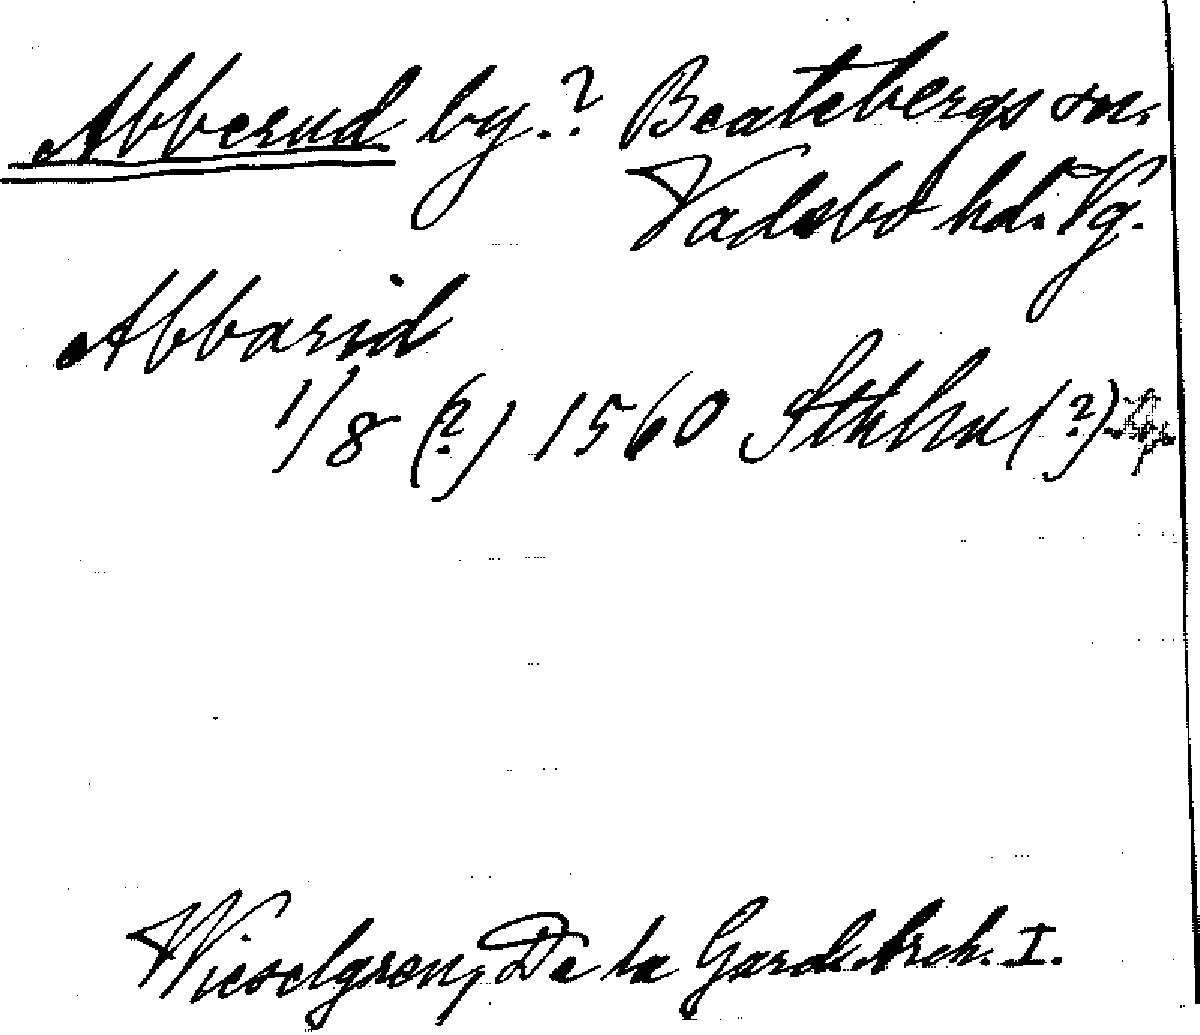 Abberud by.? Beatebergs sn.
Vadsbo hd. Vg.
Abbarid
1/8 (?) 1560 Sthlm (?).
Wieselgren, De la Gard. Arch. I.